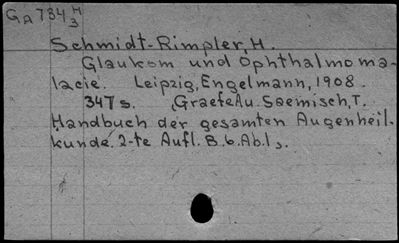 GA734 H
3
Schmidt-Rimpler, H.
Glaukom und Ophthalmoma-
lacie. Leipzig, Engelmann, 1908.
347 s. Graefe A u. Saemisch, T.
Handbuch der gesamten Augenheil-
kunde. 2-te Aufl. B. 6. Ab. 1,.